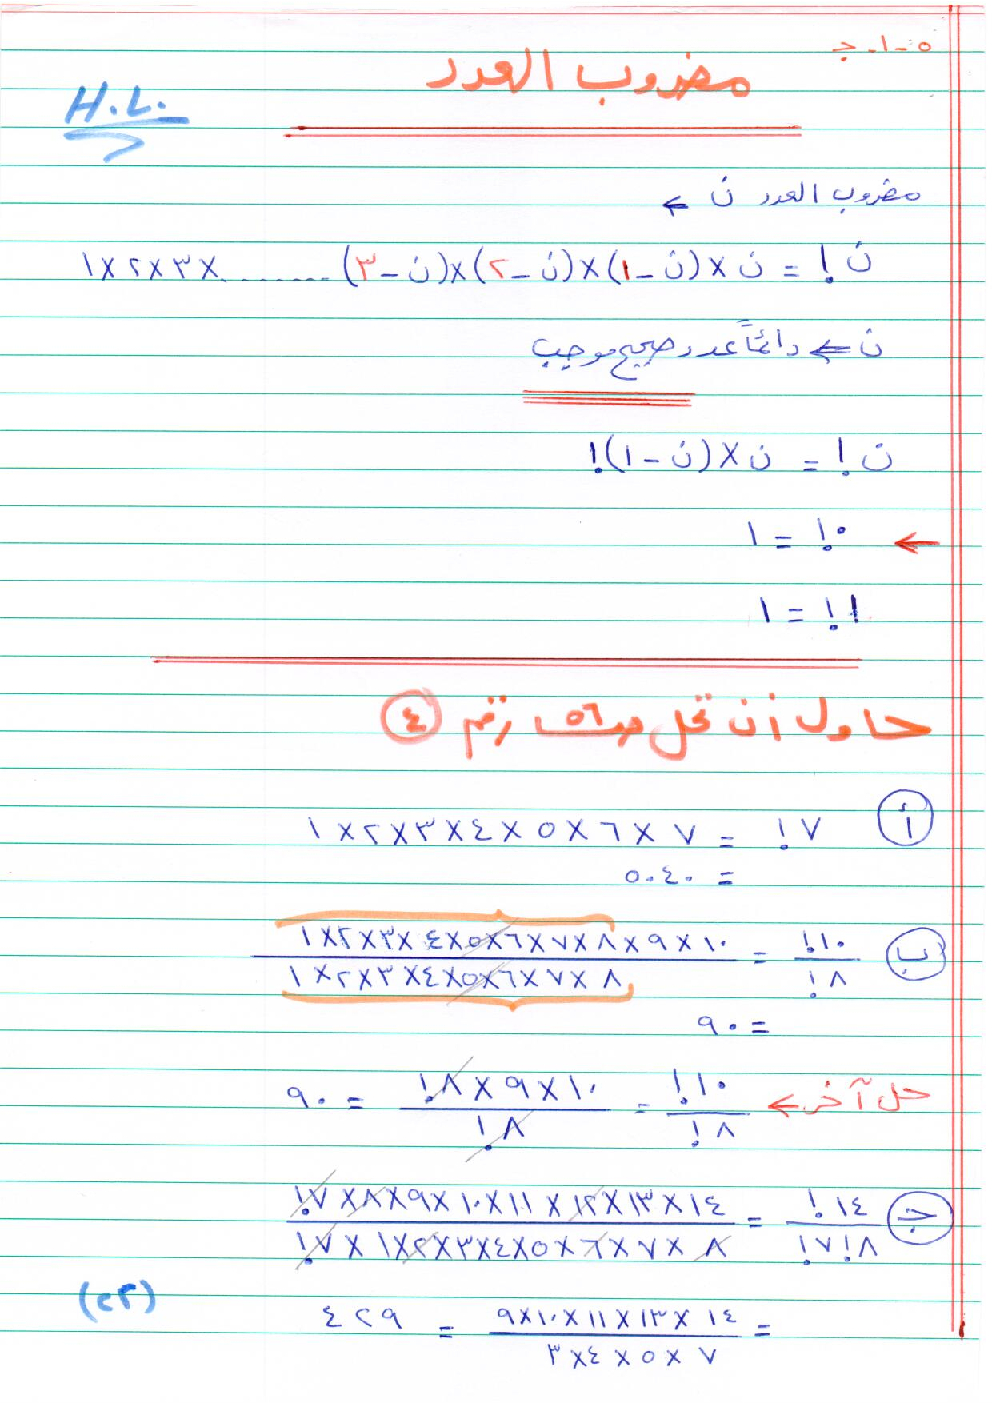 ٥-١-ج
مضروب العدد
H.L.
مضروب العدد ن ←
ن! = ن × (ن-١) × (ن-٢) × (ن-٣) ........ × ٣ × ٢ × ١
ن ← دائماً عدد صحيح موجب
ن! = ن × (ن-١)!
← ٠! = ١
١! = ١
حاول أن تحل صـ٥٦ رقم ٤
أ ٧! = ٧ × ٦ × ٥ × ٤ × ٣ × ٢ × ١
= ٥٠٤٠
ب ١٠!/٨! = ١٠ × ٩ × ٨ × ٧ × ٦ × ٥ × ٤ × ٣ × ٢ × ١ / ٨ × ٧ × ٦ × ٥ × ٤ × ٣ × ٢ × ١
= ٩٠
حل آخر ← ١٠!/٨! = ١٠ × ٩ × ٨! / ٨! = ٩٠
ج ١٤!/٨!٧! = ١٤ × ١٣ × ١٢ × ١١ × ١٠ × ٩ × ٨ × ٧! / ٨ × ٧ × ٦ × ٥ × ٤ × ٣ × ٢ × ١ × ٧!
= ١٤ × ١٣ × ١١ × ١٠ × ٩ / ٧ × ٥ × ٤ × ٣ = ٤٢٩
(٢٣)